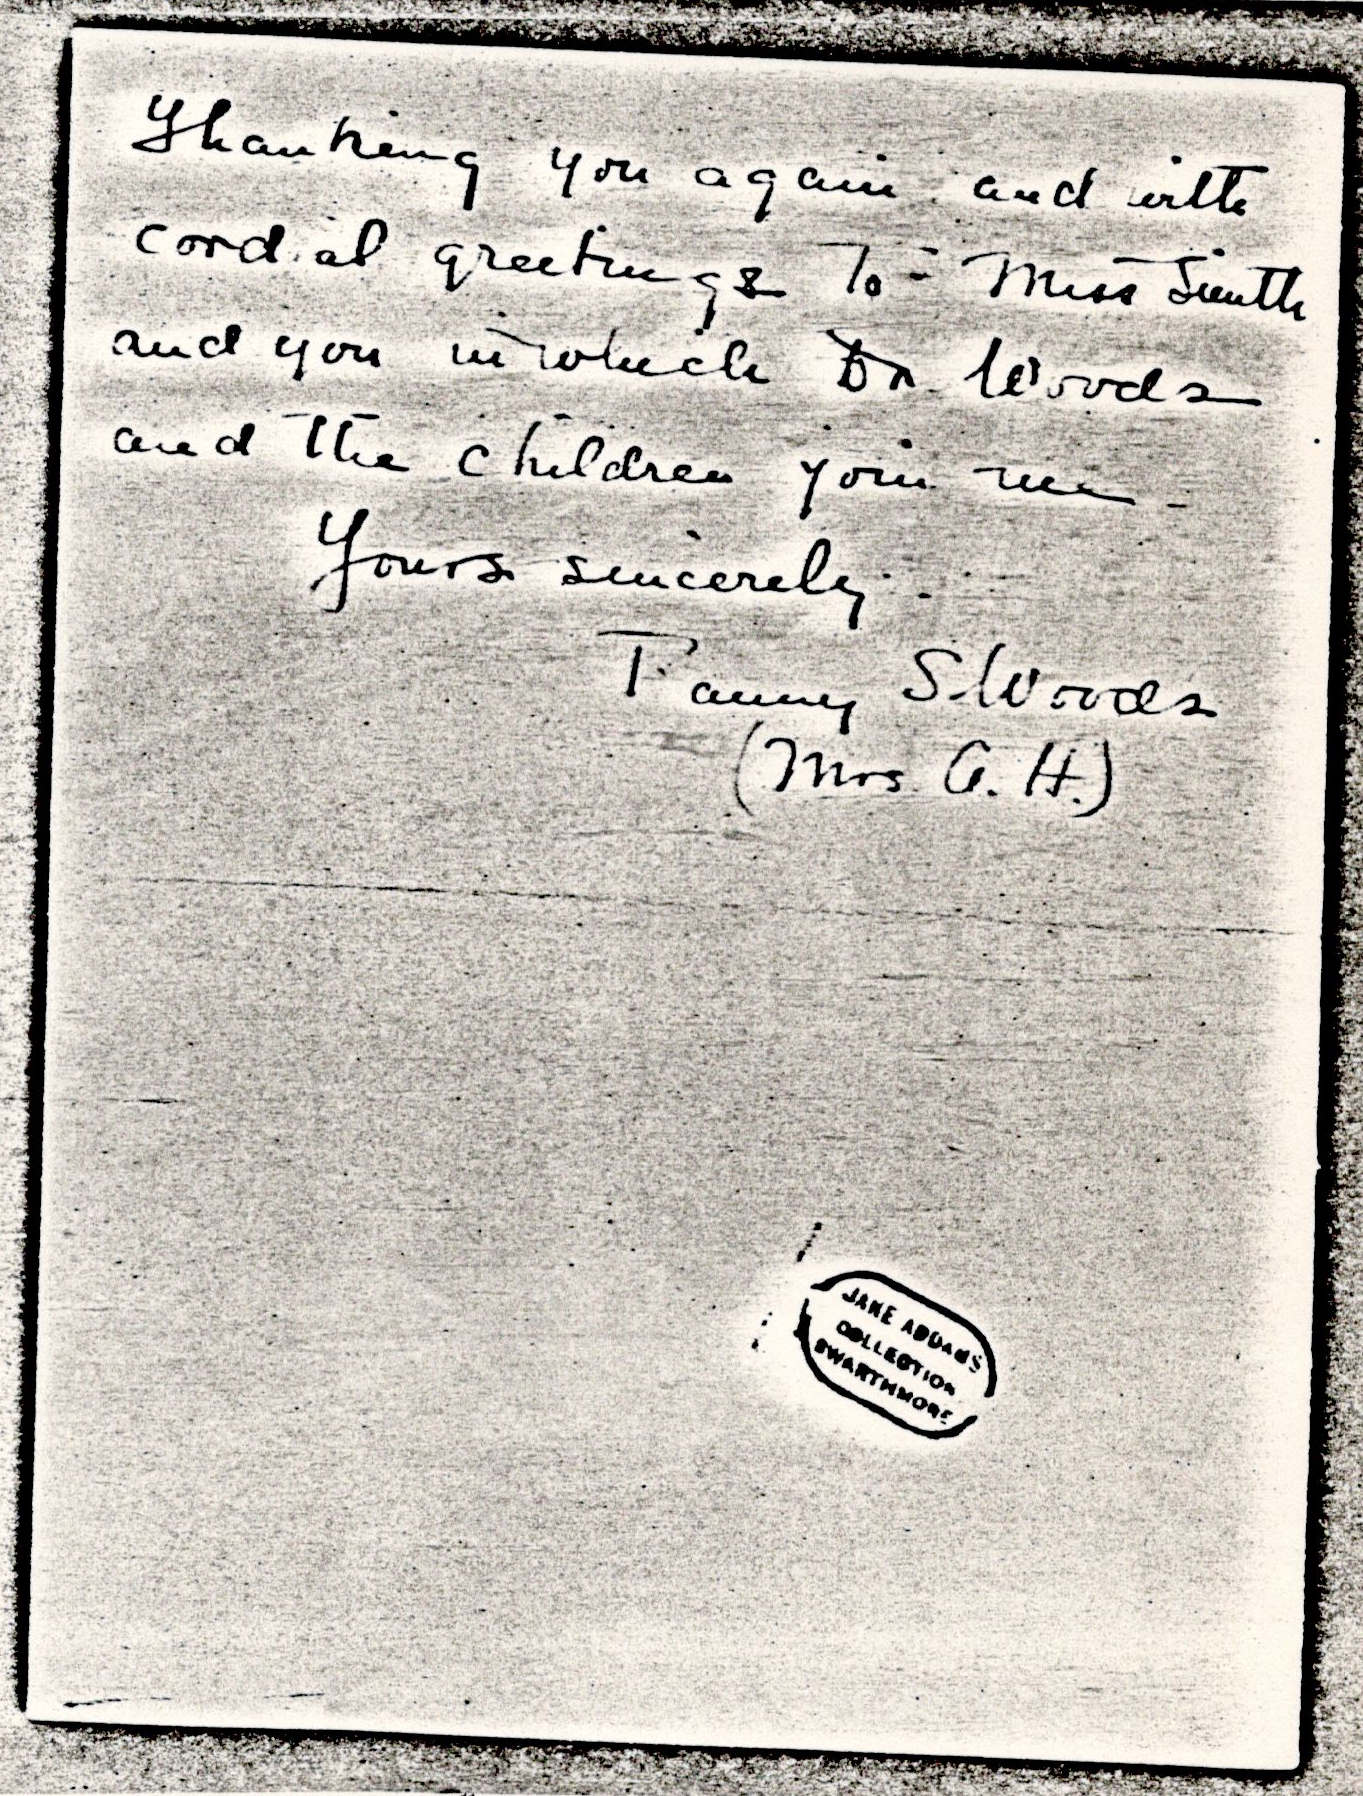 Thanking you again and with
cordial greetings to Miss Smith
and you in which Dr Woods
and the children join me -
Yours sincerely
Fanny S. Woods
(Mrs A. H.)
JANE ADDAMS
COLLECTION
SWARTHMORE